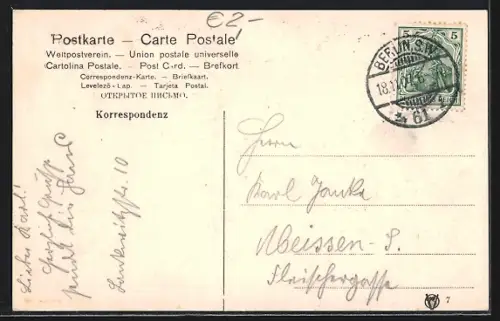 €2-
Postkarte — Carte Postale
Weltpostverein. — Union postale universelle
Cartolina Postale. — Post Card. — Brefkort
Correspondenz-Karte. — Briefkaart.
Levelező-Lap. — Tarjeta Postal.
ОТКРЫТОЕ ПИСЬМО.
Korrespondenz
5 5
BERLIN S.W.
61
Lieber Karl!
Herzliche Grüsse
sendet dir Hans
10
Herrn
Karl
Meissen - S.
Fleischergasse
7